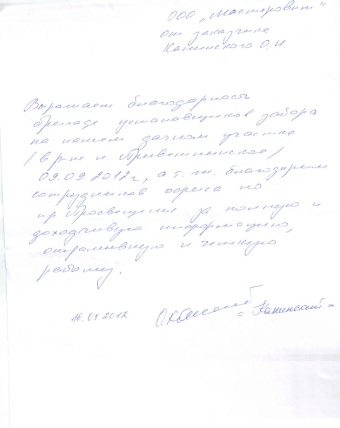 ООО „Мастеровит"
от заказчика
Каминского О.И.
Выражаем благодарность
бригаде установщиков забора
на нашем дачном участке
/в р-не п. Приветнинское/
09.09.2012г, а т.ж. благодарим
сотрудников офиса по
пр. Просвещения за полную и
доходчивую информацию,
оперативную и четкую
работу.
16.09.2012